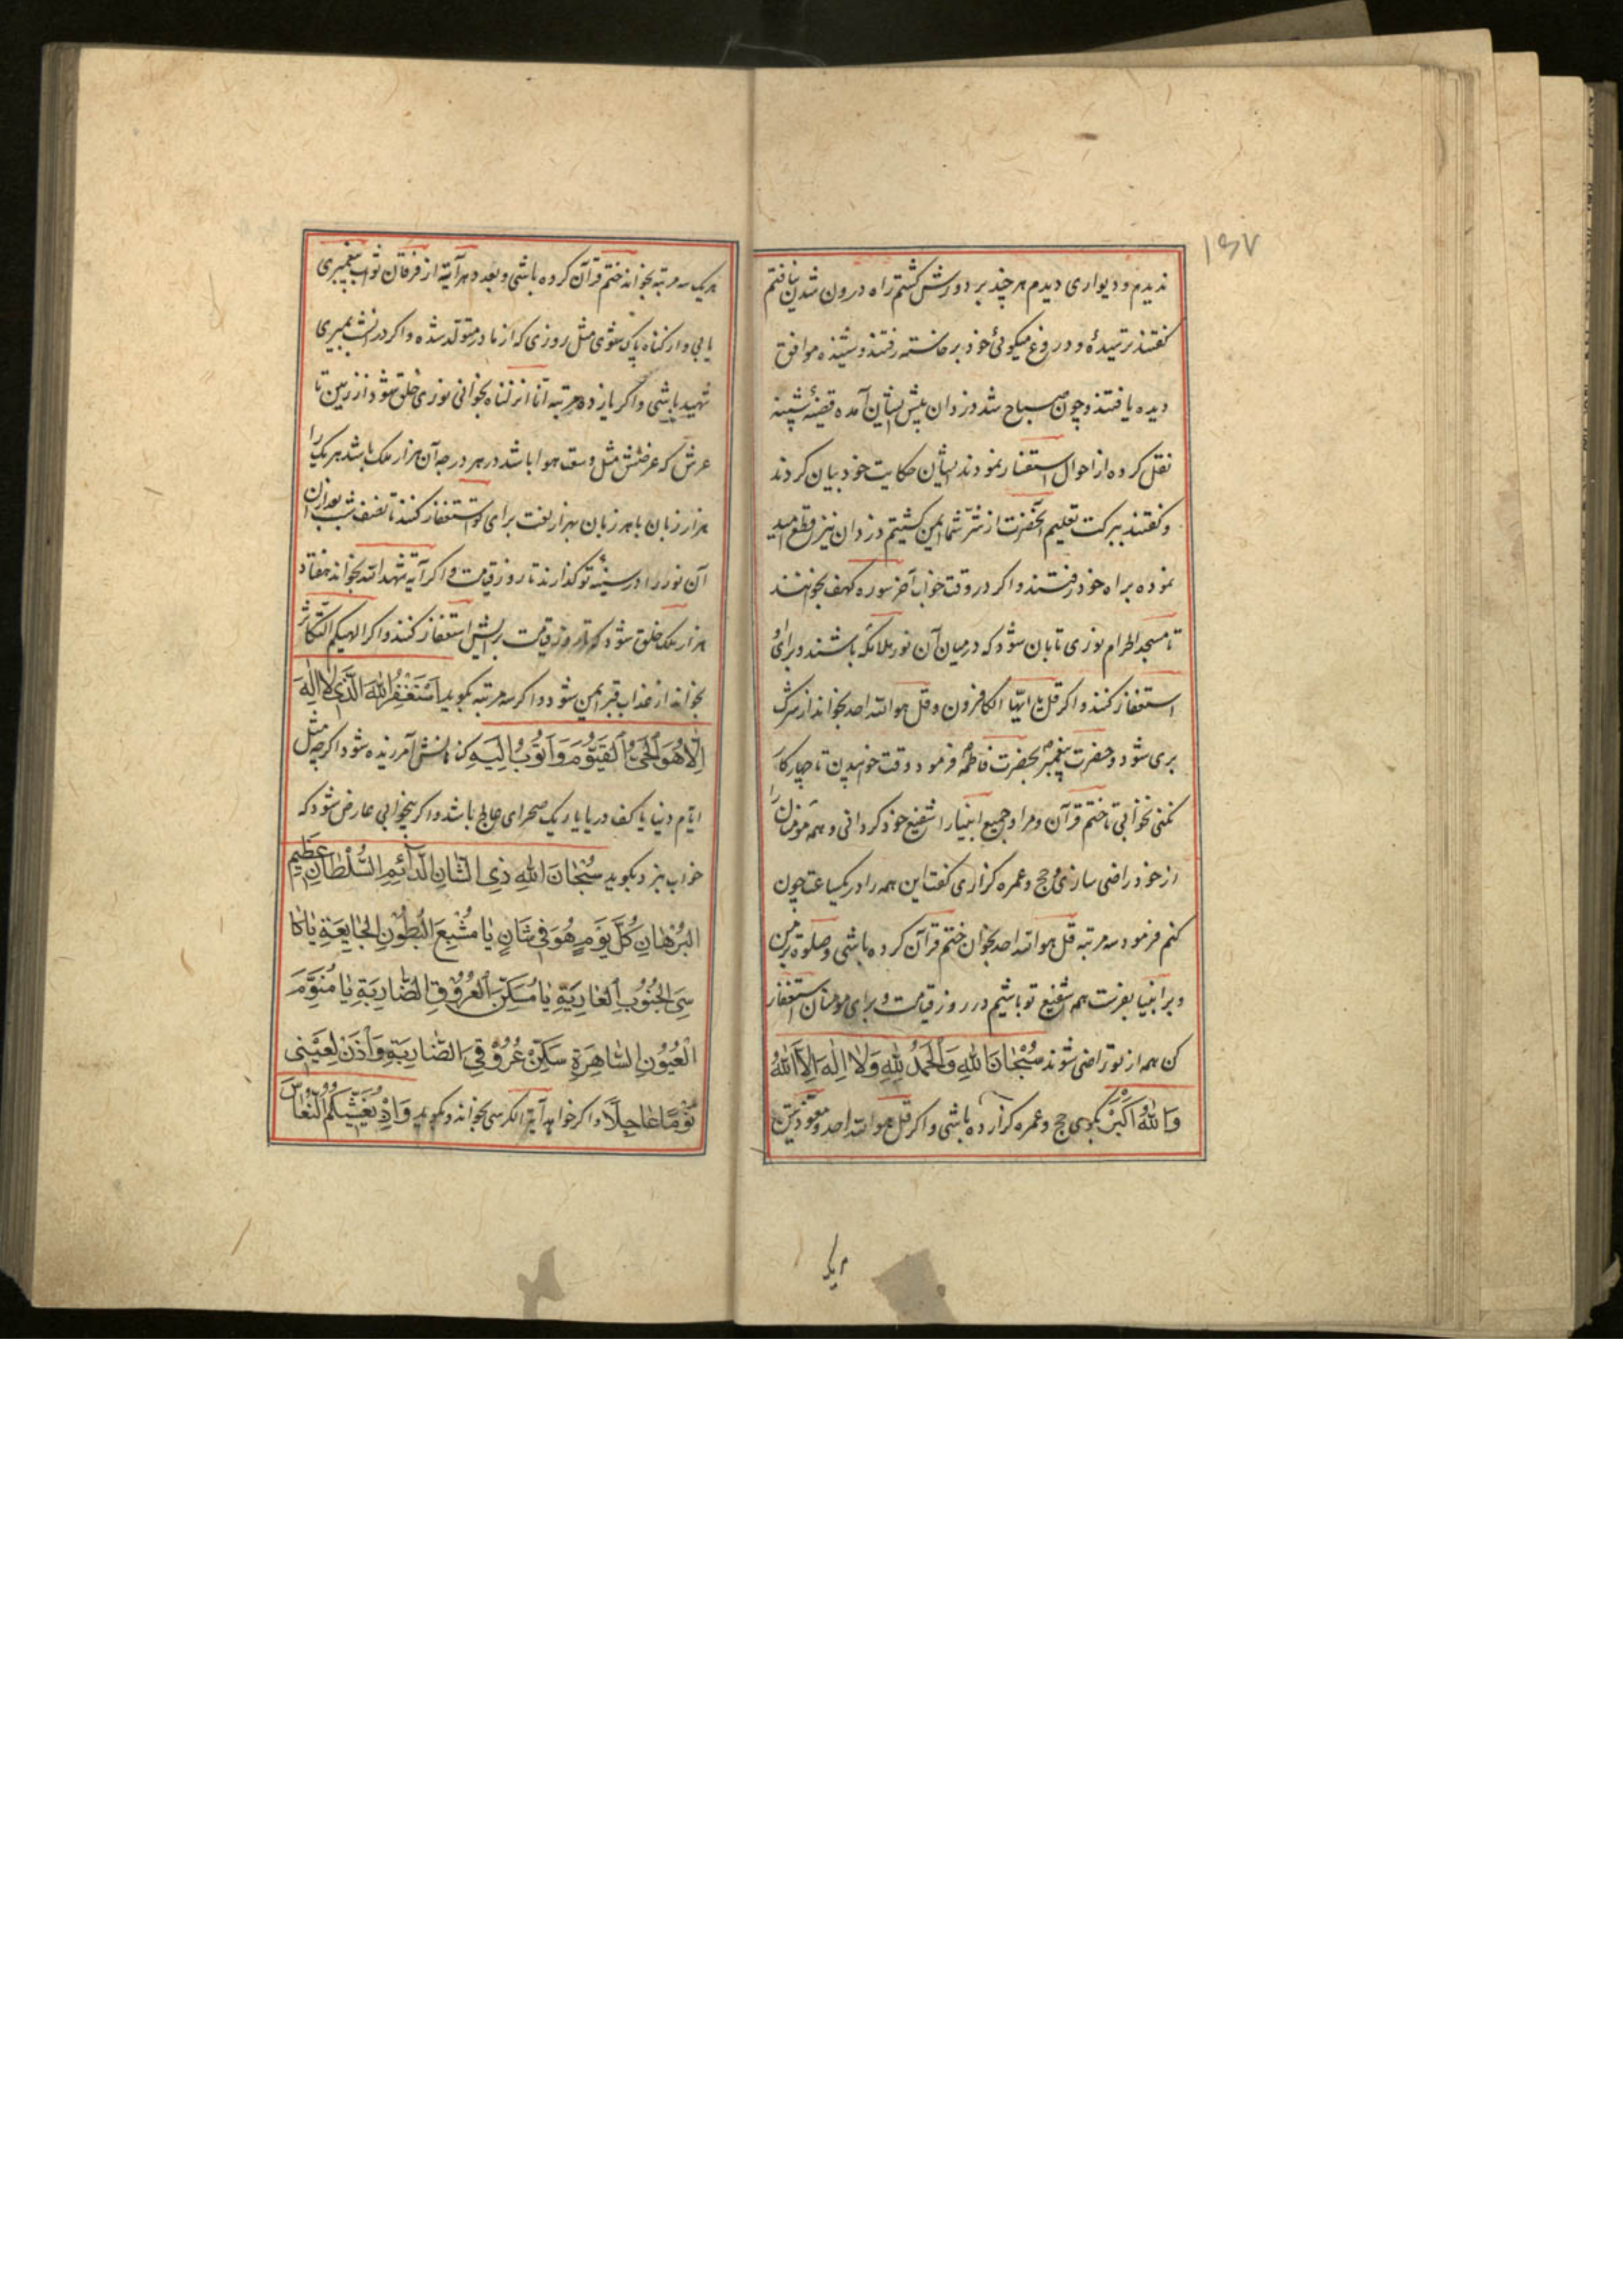 ۱۶۷
ندیدم و دیواری دیدم هر چند بر دورش کشتم راه درون شدن نیافتم
کفتند ترسیدهٔ و دروغ میکوئی خود برخاسته رفتند و شنیده موافق
دیده یافتند و چون صباح شد دزدان پیش ایشان آمده قضیهٔ شبینه
نقل کرده از احوال استفسار نمودند ایشان حکایت خود بیان کردند
و کفتند ببرکت تعلیم آنحضرت از شر شما ایمن کشتیم دزدان نیز قطع امید
نموده براه خود رفتند و اکر در وقت خواب آخر سوره کهف بخوانند
تا مسجد الحرام نوری تابان شود که درمیان آن نور ملائکه باشند و برای او
استغفار کنند و اکر قل یا ایها الکافرون و قل هو الله احد بخواند از شرک
بری شود و حضرت پیغمبر بحضرت فاطمه فرمود وقت خوابیدن تا چهار کار
نکنی نخوابی تا ختم قرآن و مرا و جمیع انبیا را شفیع خود کردانی و همه مومنان را
از خود راضی سازی و حج و عمره کزاری کفت این همه را در یکساعت چون
کنم فرمود سه مرتبه قل هو الله احد بخوان ختم قرآن کرده باشی و صلوة بر من
و بر انبیا بفرست همه شفیع تو باشیم در روز قیامت و برای مومنان استغفار
کن همه از تو راضی شوند سُبْحَانَ اللّٰهِ وَالْحَمْدُ لِلّٰهِ وَلَا اِلٰهَ اِلَّا اللّٰهُ
وَاللّٰهُ اَكْبَرُ بکوی حج و عمره کزارده باشی و اکر قل هو الله احد و معوذتین
هر یک سه مرتبه بخواند ختم قرآن کرده باشی و بعدد هر آیة از فرقان ثواب پیغمبری
یابی و از کناه پاک شوی مثل روزی که از مادر متولد شده و اکر در انشب بمیری
شهید باشی و اکر یازده مرتبه انا انزلناه بخوانی نوری خلق شود از زمین تا
عرش که عرضش مثل وسعت هوا باشد در هر درجه آن هزار ملک باشد هر یک را
هزار زبان با هر زبان بهزار لغت برای تو استغفار کنند تا نصف شب بعد از ان
آن نور را در سینهٔ تو کذارند تا روز قیامت و اکر آیه شهد الله بخواند هفتاد
هزار ملک خلق شود که تا روز قیامت برایش استغفار کنند و اکر الهیکم التکاثر
بخواند از عذاب قبر ایمن شود و اکر سه مرتبه بکوید اَسْتَغْفِرُ اللّٰهَ الَّذِی لَا اِلٰهَ
اِلَّا هُوَ الْحَیُّ الْقَیُّومُ وَاَتُوبُ اِلَیْهِ کناهانش آمرزیده شود اکر چه مثل
ایّام دنیا یا کف دریا یا ریک صحرای عالج باشد و اکر بیخوابی عارض شود که
خواب نبرد بکوید سُبْحَانَ اللّٰهِ ذِی الشَّانِ الدَّائِمِ السُّلْطَانِ عَظِیمِ
الْبُرْهَانِ کُلَّ یَوْمٍ هُوَ فِی شَانٍ یَا مُشْبِعَ الْبُطُونِ الْجَایِعَةِ یَا کَا
سِیَ الْجُنُوبِ الْعَارِیَةِ یَا مُسَکِّنَ الْعُرُوقِ الضَّارِبَةِ یَا مُنَوِّمَ
الْعُیُونِ السَّاهِرَةِ سَکِّنْ عُرُوقِیَ الضَّارِبَةِ وَاْذَنْ لِعَیْنِی
نَوْمًا عَاجِلًا و اکر خواهد آیة الکرسی بخواند و بکوید وَاِذْ یُغَشِّیکُمُ النُّعَاسَ
هر یک